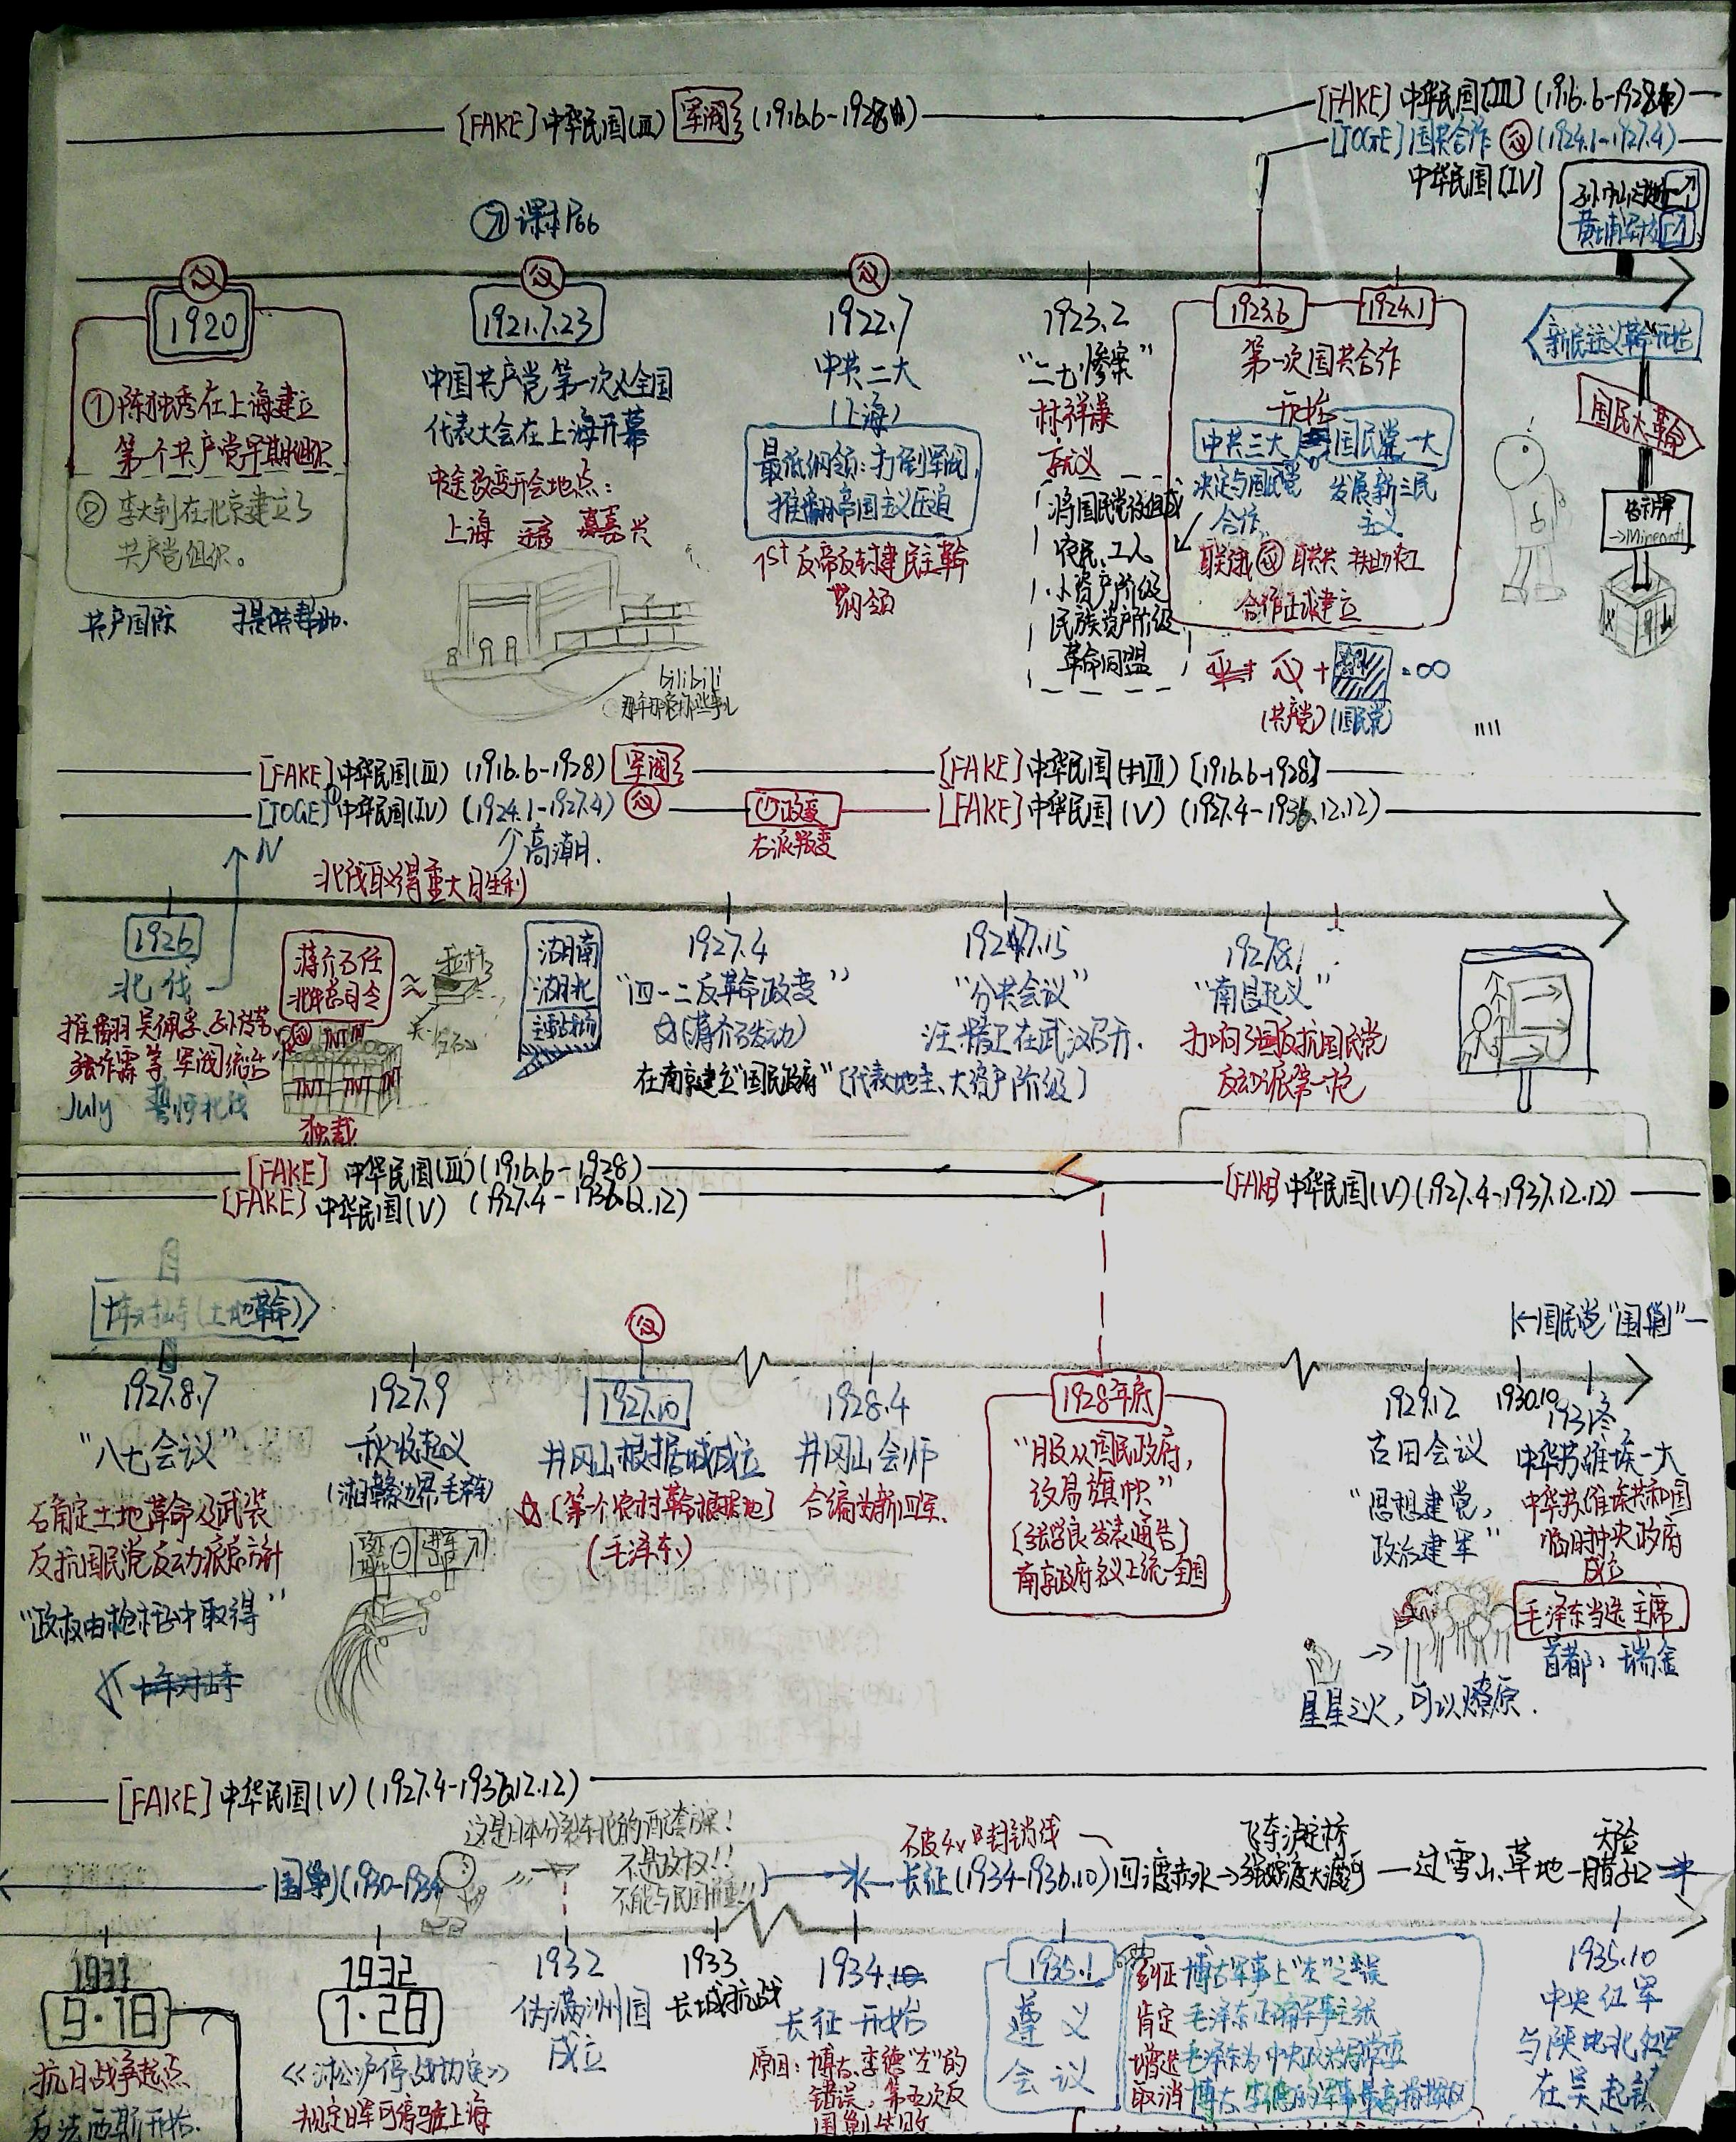 [FAKE] 中华民国(Ⅲ) 军阀 (1916.6-1928)
[FAKE] 中华民国[Ⅲ] (1916.6-1928)
[TOGE] 国共合作 (1924.1-1927.4)
中华民国[IV]
课本P66
1920
①陈独秀在上海建立
第一个共产党早期组织
②李大钊在北京建立了
共产党组织。
共产国际 提供帮助.
1921.7.23
中国共产党第一次全国
代表大会在上海开幕
中途改变开会地点：
上海 嘉兴
bilibili
1922.7
中共二大
(上海)
最低纲领：打倒军阀，
推翻帝国主义压迫
1st 反帝反封建民主革命
纲领
1923.2
“二七惨案”
林祥谦
就义
将国民党改组成
农民、工人
小资产阶级
民族资产阶级
革命同盟
1923.6
1924.1
第一次国共合作
开始
中共三大 国民党一大
决定与国民党
合作
发展新三民
主义
联俄 联共 扶助农工
合作正式建立
+ =∞
(共产党) (国民党)
新民主主义革命开始
国民大革命
告示牌
→Minecraft
[FAKE] 中华民国(Ⅲ) (1916.6-1928) 军阀
[FAKE] 中华民国(Ⅲ) [1916.6-1928]
[TOGE] 中华民国(IV) (1924.1-1927.4)
政变
右派叛变
[FAKE] 中华民国(V) (1927.4-1936.12.12)
N
高潮.
北伐取得重大胜利
1926
北伐
推翻吴佩孚、孙传芳、
张作霖等军阀统治
July 誓师北伐
蒋介石任
北伐总司令
TNT
TNT TNT TNT
独裁
湖南
湖北
主战场
1927.4
“四一二反革命政变”
(蒋介石发动)
在南京建立“国民政府”(代表地主、大资产阶级)
1927.7.15
“分共会议”
汪精卫在武汉召开.
1927.8.1
“南昌起义”
打响了武装反抗国民党
反动派第一枪
[FAKE] 中华民国(Ⅲ) (1916.6-1928)
[FAKE] 中华民国(V) (1927.4-1936.12.12)
[FAKE] 中华民国(V) (1927.4-1937.12.12)
十年对峙(土地革命)
←国民党“围剿”
1927.8.7
“八七会议”
确定土地革命及武装
反抗国民党反动派总方针
“政权由枪杆子中取得”
十年对峙
1927.9
秋收起义
(湘赣边界,毛泽东)
1927.10
井冈山根据地成立
(第一个农村革命根据地)
(毛泽东)
1928.4
井冈山会师
合编为新四军.
1928年底
“服从国民政府，
改易旗帜”
(张学良发表通告)
南京政府名义上统一全国
1929.12
古田会议
“思想建党，
政治建军”
1930.10
1931冬
中华苏维埃一大
中华苏维埃共和国
临时中央政府
成立
毛泽东当选主席.
首都：瑞金
星星之火，可以燎原.
[FAKE] 中华民国(V) (1927.4-1936.12.12)
这是日本分裂东北的配套方案！
不是政权!!
围剿(1930-1934
长征(1934-1936.10) 四渡赤水→强渡大渡河
飞夺泸定桥
过雪山、草地
天险
腊子口
1931
9·18
抗日战争起点
反法西斯开始.
1932
1·28
《淞沪停战协定》
规定日军可停驻上海
1932
伪满洲国
成立
1933
长城抗战
1934.10
长征开始
原因：博古、李德“左”的
错误，第五次反
围剿失败
1935.1
遵义
会议
纠正博古军事上“左”之错误
肯定毛泽东正确军事主张
增选毛泽东为中央政治局常委
取消博古、李德的军事最高指挥权
1935.10
中央红军
与陕北红军
在吴起镇